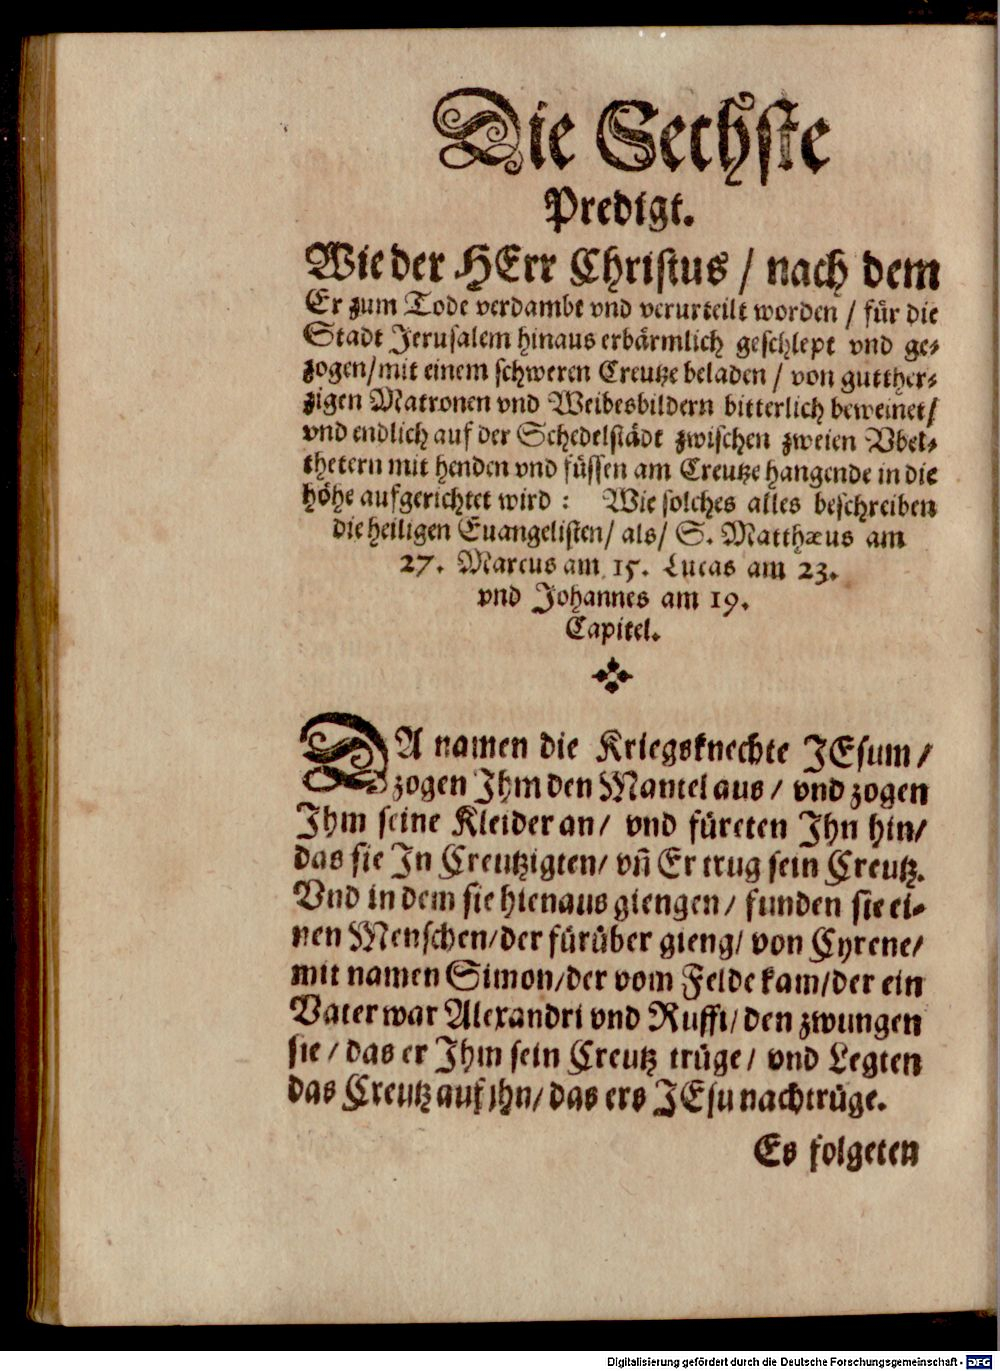 Die Sechste
Predigt.
Wie der HErr Christus / nach dem
Er zum Tode verdambt vnd verurteilt worden / für die
Stadt Jerusalem hinaus erbärmlich geschlept vnd ge-
zogen/mit einem schweren Creutze beladen / von gutther-
zigen Matronen vnd Weibesbildern bitterlich beweinet/
vnd endlich auf der Schedelstädt zwischen zweien Vbel-
thetern mit henden vnd füssen am Creutze hangende in die
höhe aufgerichtet wird : Wie solches alles beschreiben
die heiligen Euangelisten/ als/ S. Matthæus am
27. Marcus am 15. Lucas am 23.
vnd Johannes am 19.
Capitel.
DA namen die Kriegsknechte JEsum /
zogen Jhm den Mantel aus / vnd zogen
Jhm seine Kleider an/ vnd füreten Jhn hin/
das sie Jn Creutzigten/ vñ Er trug sein Creutz.
Vnd in dem sie hienaus giengen / funden sie ei-
nen Menschen/der fürüber gieng/ von Cyrene/
mit namen Simon/der vom Felde kam/der ein
Vater war Alexandri vnd Ruffi/ den zwungen
sie / das er Jhm sein Creutz trüge / vnd Legten
das Creutz auf jhn/ das ers JEsu nachtrüge.
Es folgeten
Digitalisierung gefördert durch die Deutsche Forschungsgemeinschaft - DFG